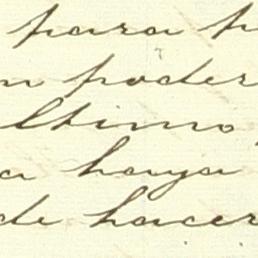 para p
n poder
ltimo,
a haya
de hacer